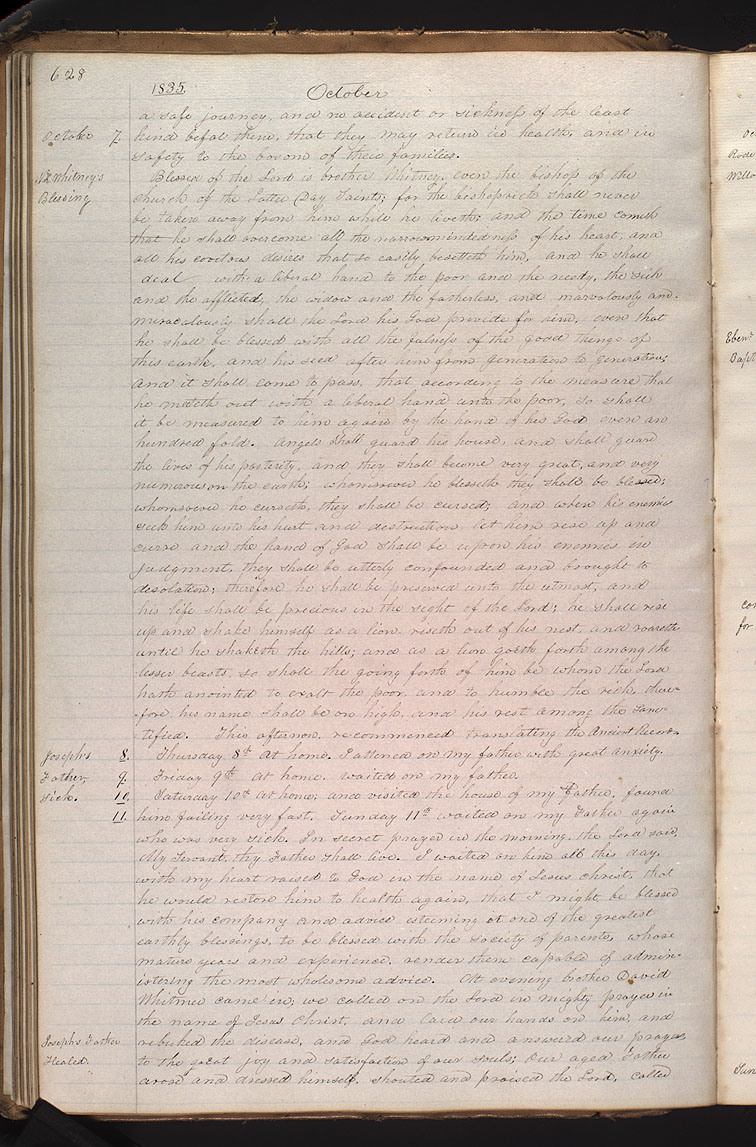 628
1835. October
a safe journey, and no accident or sickness of the least
October 7. kind befal them, that they may return in health, and in
safety to the bosom of their families.
N. K. Whitney's Blessed of the Lord is brother Whitney, even the bishop of the
Blessing church of the Latter Day Saints; for the bishoprick shall never
be taken away from him while he liveth; and the time cometh
that he shall overcome all the narrowmindedness of his heart, and
all his covetous desires that so easily besetteth him, and he shall
deal with a liberal hand to the poor and the needy, the sick
and the afflicted, the widow and the fatherless, and marvelously and
miraculously shall the Lord his God provide for him, even that
he shall be blessed with all the fulness of the good things of
this earth, and his seed after him from generation to generation;
and it shall come to pass, that according to the measure that
he meteth out with a liberal hand unto the poor, so shall
it be measured to him again by the hand of his God even an
hundred fold. Angels shall guard his house, and shall guard
the lives of his posterity, and they shall become very great, and very
numerous on the earth; whomsoever he blesseth they shall be blessed;
whomsoever he curseth, they shall be cursed; and when his enemies
seek him unto his hurt and destruction, let him rise up and
curse and the hand of God shall be upon his enemies in
judgment, they shall be utterly confounded and brought to
desolation; therefore he shall be preserved unto the utmost, and
his life shall be precious in the sight of the Lord; he shall rise
up and shake himself as a lion riseth out of his nest, and roareth
until he shaketh the hills; and as a lion goeth forth among the
lesser beasts, so shall the going forth of him be whom the Lord
hath anointed to exalt the poor, and to humble the rich, there-
fore, his name shall be on high, and his rest among the sanc-
tified. This afternoon recommenced translating the Ancient Records
Joseph's 8. Thursday 8th At home. I attened on my father with great anxiety.
Father, 9. Friday 9th at home. Waited on my father.
sick. 10. Saturday 10th at home; and visited the house of my Father, found
11. him failing very fast. Sunday 11th waited on my Father again
who was very sick. In secret prayer in the morning the Lord said,
My servant, thy Father shall live. I waited on him all this day,
with my heart raised to God in the name of Jesus Christ, that
he would restore him to health again, that I might be blessed
with his company and advice esteeming it one of the greatest
earthly blessings, to be blessed with the society of parents, whose
mature years and experience, render them capable of admin-
istering the most wholesome advice. At evening brother David
Whitmer came in, we called on the Lord in mighty prayer in
the name of Jesus Christ, and laid our hands on him, and
Joseph's Father rebuked the disease, and God heard and answered our prayers
Healed. to the great joy and satisfaction of our souls; our aged Father
arose and dressed himself, shouted and praised the Lord, called
Rode
Eben
Bapt
for